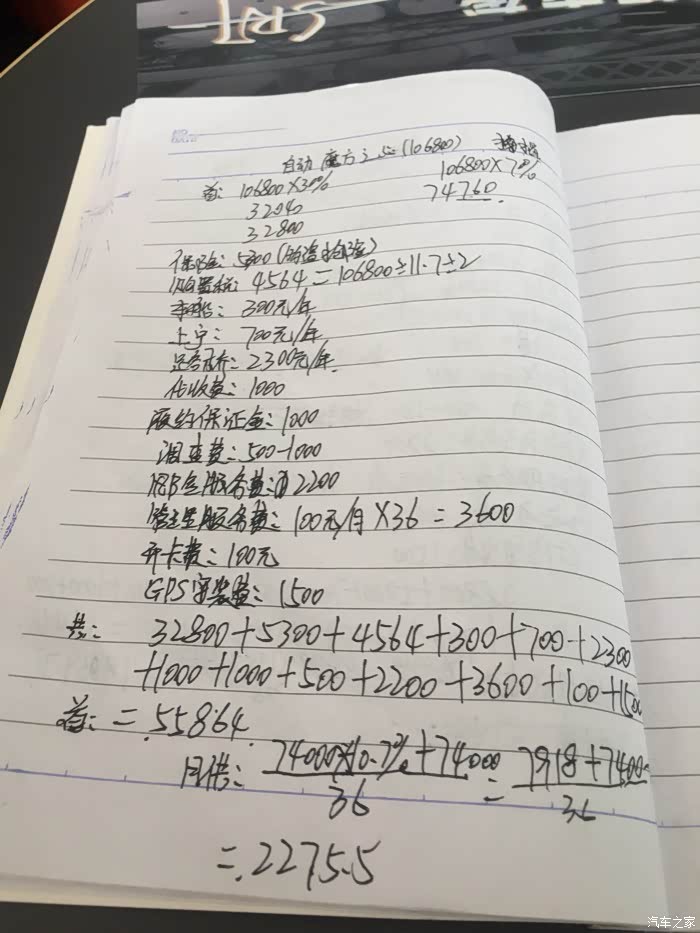 SRT
自动 魔方之心 (106800)
首: 106800×30%
106800×70%
32040
74760
32800
保险: 5300
购置税: 4564 = 106800÷11.7÷2
300元/年
上户: 700元/年
2300元/年
1000
履约保证金: 1000
调查费: 500-1000
服务费: 2200
管理服务费: 100元/月×36 = 3600
开卡费: 100元
GPS安装费: 1500
共: 32800+5300+4564+300+700+2300
+1000+1000+500+2200+3600+100+1500
首: = 55864
月供: 74000×10.7%+74000 / 36 = 7918+74000 / 36
= 2275.5
汽车之家